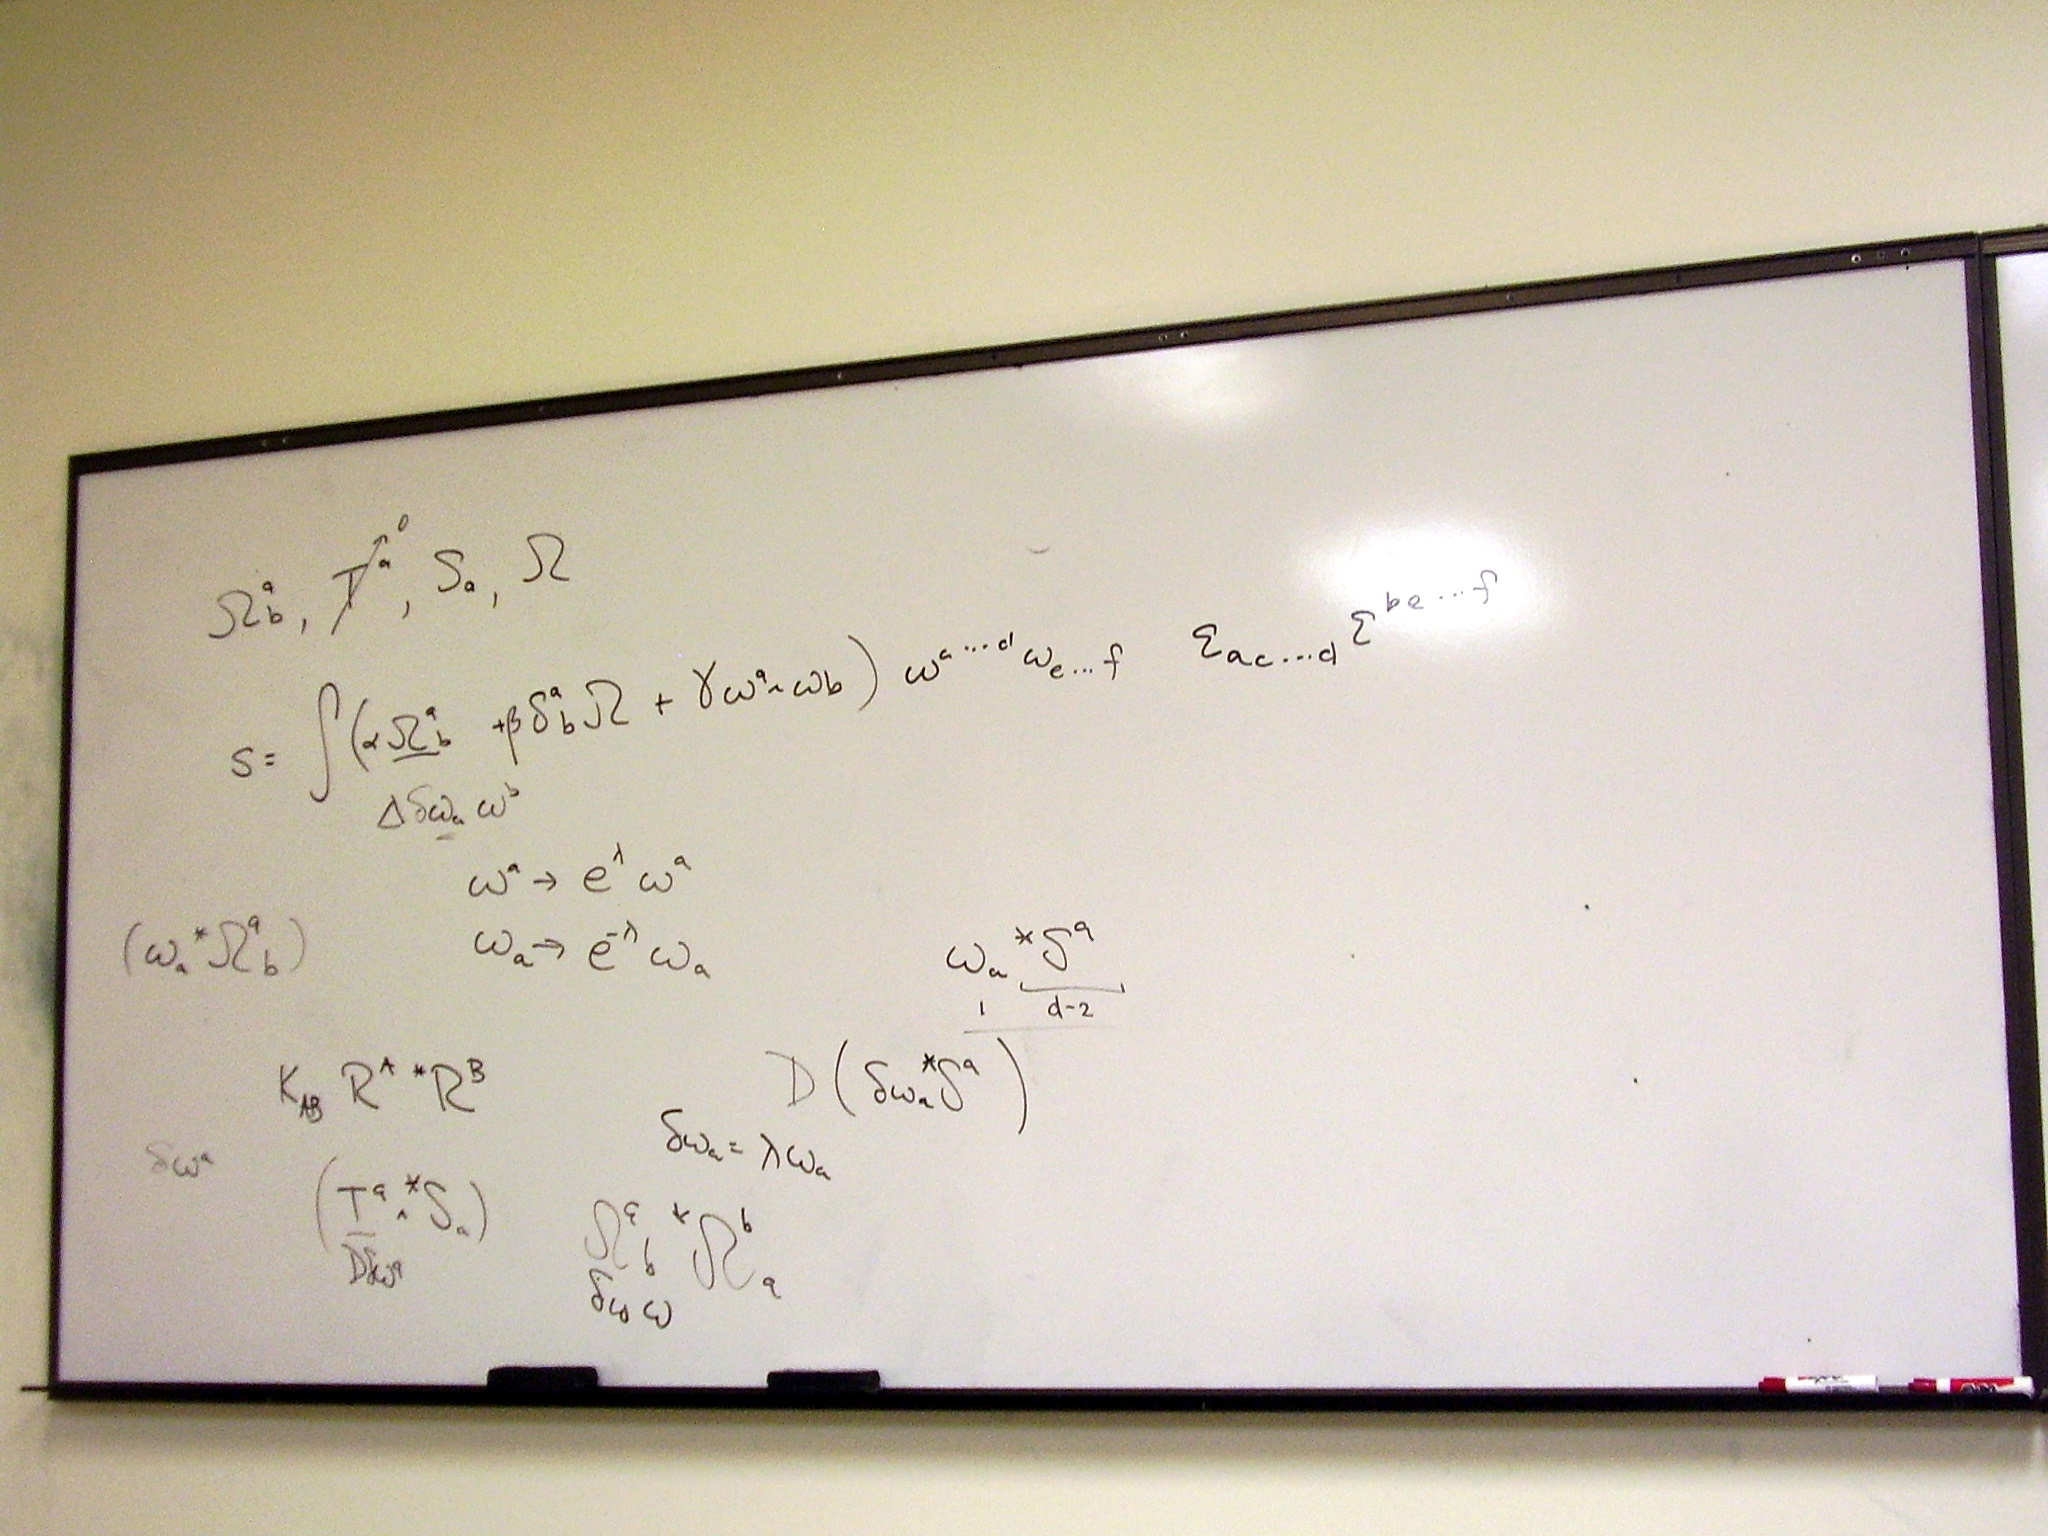 Ω^a_b, T^a→0, S_a, Ω
S = ∫(αΩ^a_b + βδ^a_bΩ + γω^a∧ω_b) ω^{c...d} ω_{e...f} ε_{ac...d} ε^{be...f}
Δδω_a ω^b
ω^a → e^λ ω^a
(ω_a *Ω^a_b) ω_a → e^{-λ} ω_a ω_a *S^a
1 d-2
K_{AB} R^A *R^B D(δω_a *S^a)
δω^a δω_a = λω_a
(T^a ∧ *S_a) Ω^a_b *Ω^b_a
Dδω^a δω ω